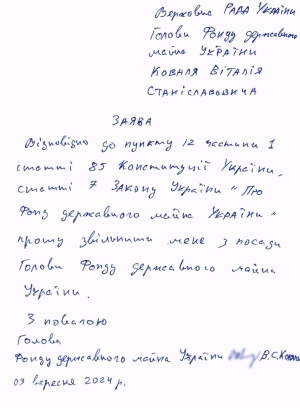 Верховна Рада України
Голови Фонду державного
майна України
Коваля Віталія
Станіславовича
ЗАЯВА
Відповідно до пункту 12 частини 1
статті 85 Конституції України,
статті 7 Закону України "Про
Фонд державного майна України"
прошу звільнити мене з посади
Голови Фонду державного майна
України.
З повагою
Голова
Фонду державного майна України В.С.Коваль
03 вересня 2024 р.